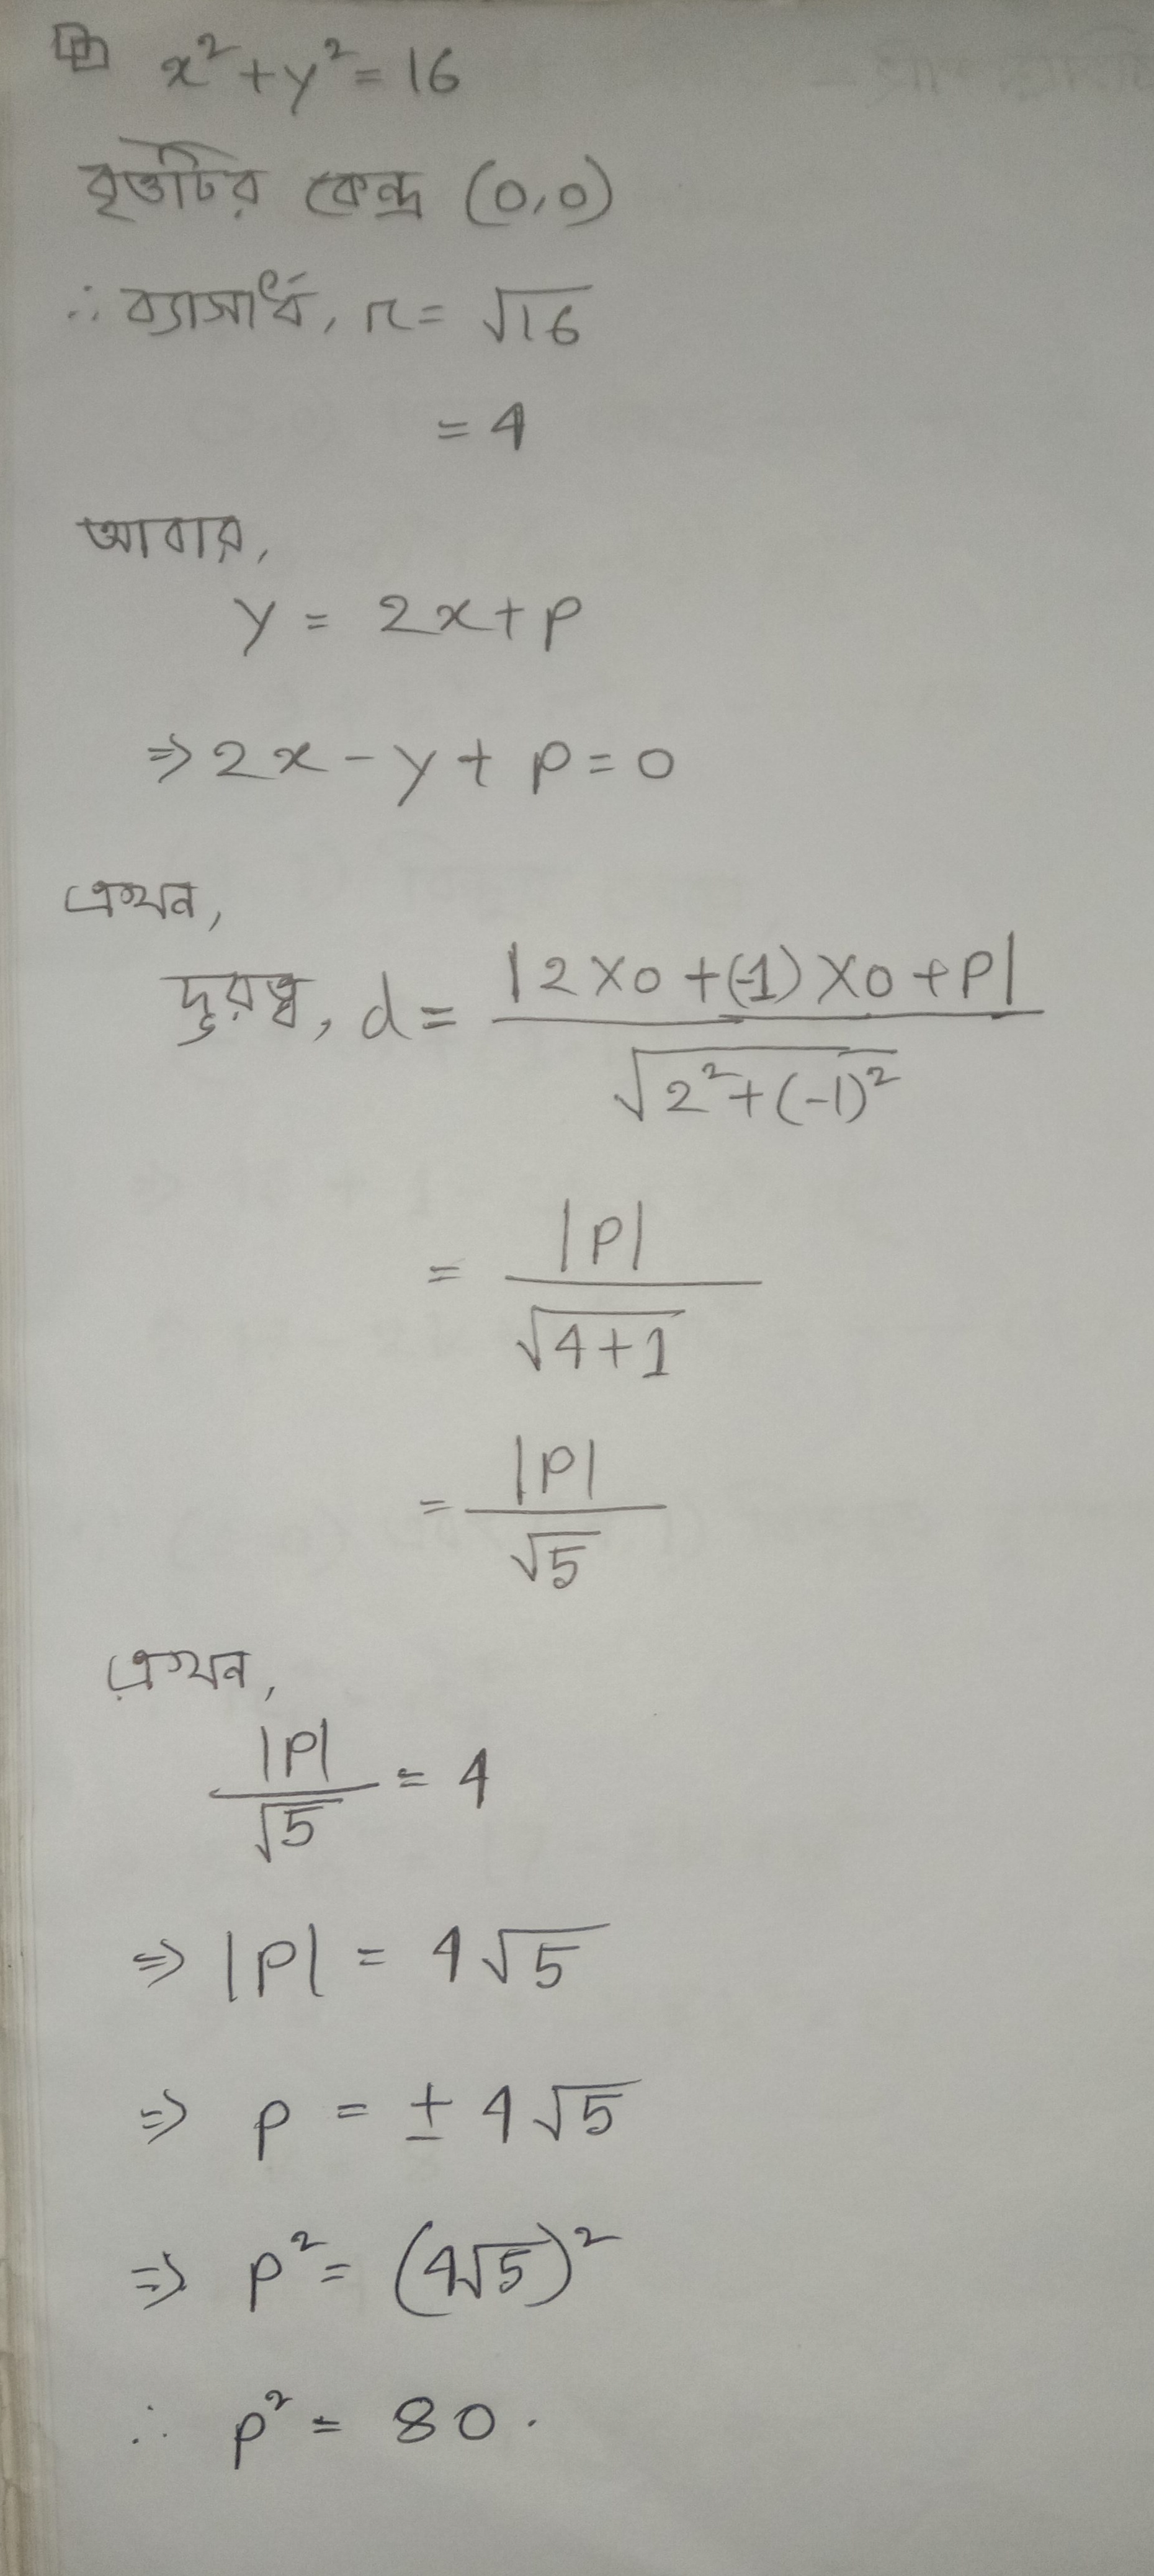 x² + y² = 16
বৃত্তটির কেন্দ্র (0,0)
∴ ব্যাসার্ধ, r = √16
= 4
আবার,
y = 2x + p
⇒ 2x - y + p = 0
এখন,
দূরত্ব, d = |2×0 + (-1)×0 + p| / √(2² + (-1)²)
= |p| / √(4+1)
= |p| / √5
এখন,
|p| / √5 = 4
⇒ |p| = 4√5
⇒ p = ± 4√5
⇒ p² = (4√5)²
∴ p² = 80.